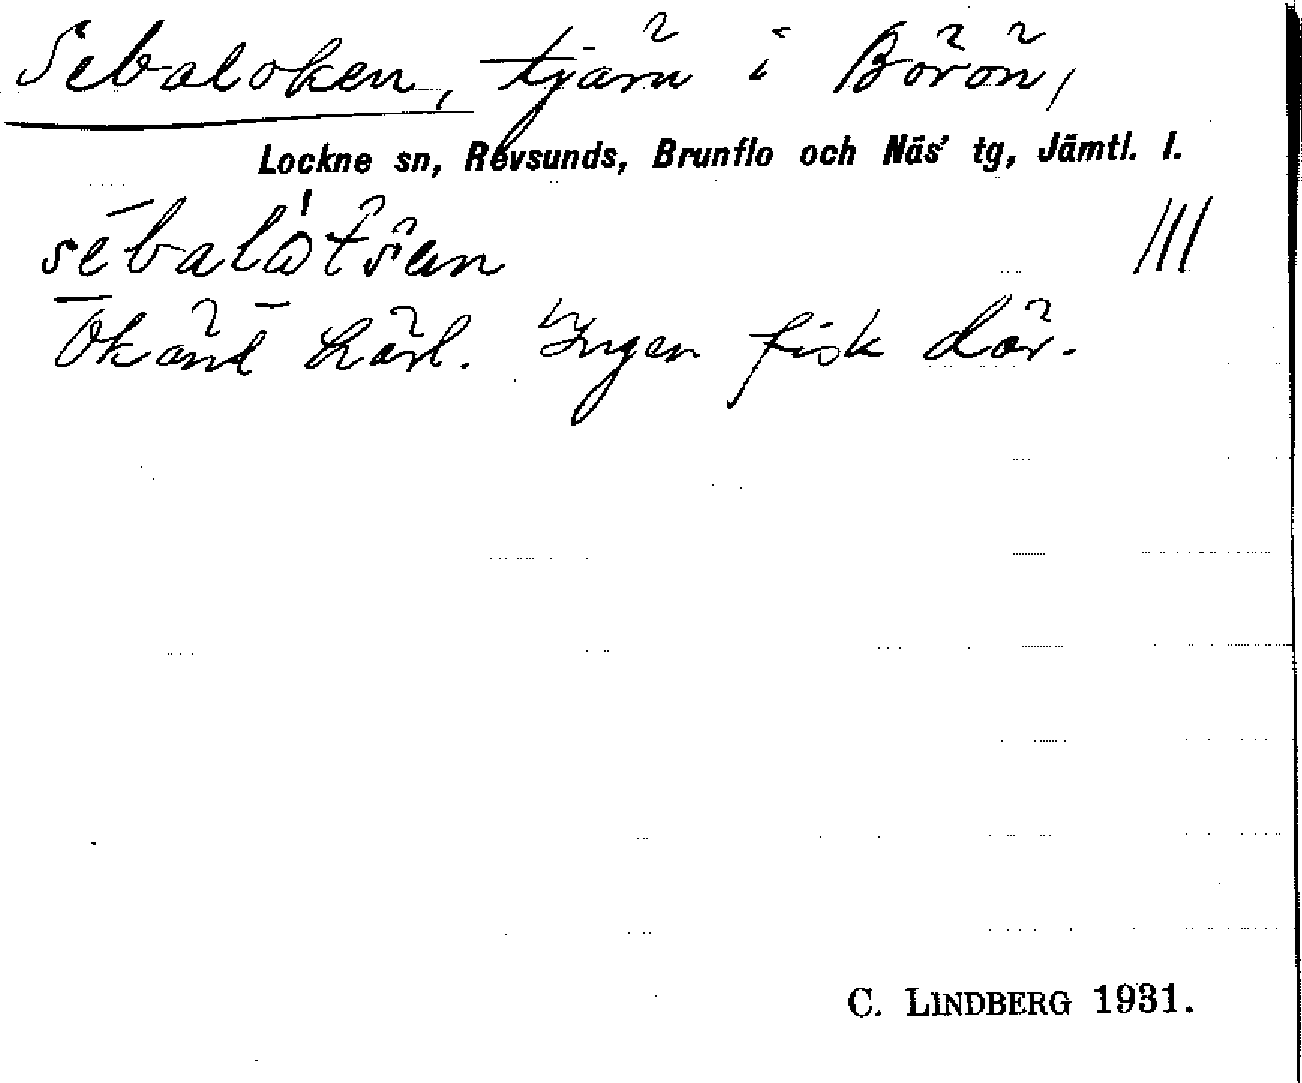 Sebaloken, tjärn i Börön,
Lockne sn, Revsunds, Brunflo och Näs' tg, Jämtl. l.
Okänd härl. Ingen fisk där.
C. LINDBERG 1931.